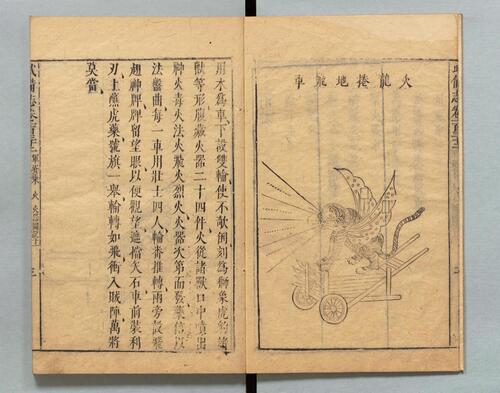 火龍捲地飛車
用木為車下設雙輪使不欹側刻為獅象虎豹諸
獸等形腹藏火器二十四件火從諸獸口中噴出
神火毒火法火飛火烈火火器次第而發藥信以
法盤曲每一車用壯士四人輪番推轉兩旁設飛
翅神牌牌留望眼以便觀望遮擋矢石車前裝利
刃上蘸虎藥號旗一舉輪轉如飛衝入賊陣萬將
莫當
武備志卷一百三十二 軍資乘 火
三